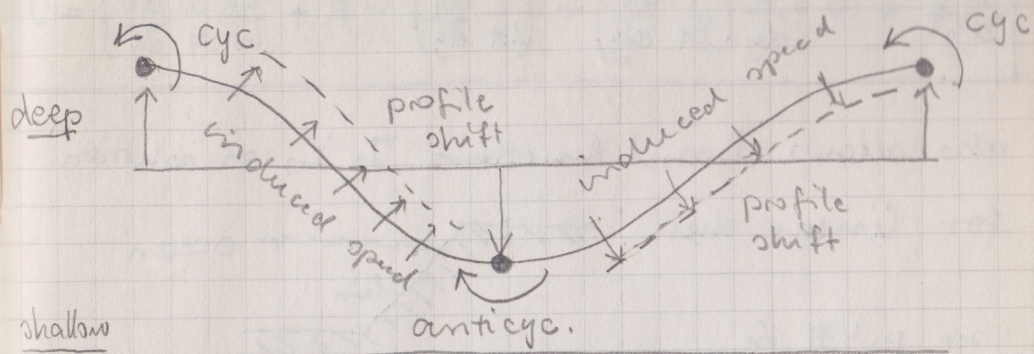 cyc
cyc
deep
profile
shift
induced speed
induced speed
profile
shift
anticyc.
shallow